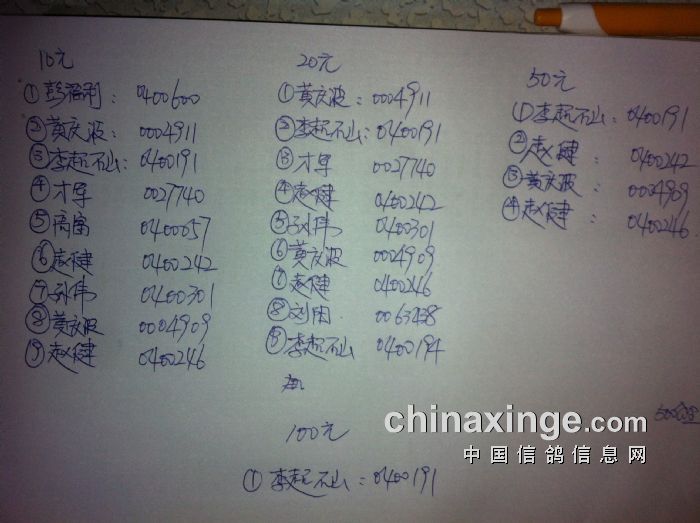 10元
① 彭福利: 0400600
② 黄庆波: 0004911
③ 李超石山: 0400191
④ 才军 0027740
⑤ 0400057
⑥ 赵健 0400242
⑦ 孙伟 0400301
⑧ 黄庆波 0004909
⑨ 赵健 0400246
20元
① 黄庆波: 0004911
② 李超石山: 0400191
③ 才军 0027740
④ 赵健 0400242
⑤ 孙伟 0400301
⑥ 黄庆波 0004909
⑦ 赵健 0400246
⑧ 刘田. 0063438
⑨ 李超石山 0400194
50元
① 李超石山: 0400191
② 赵健: 0400242
③ 黄庆波: 0004909
④ 赵健: 0400246.
100元
① 李超石山: 0400191
chinaxinge.com
中国信鸽信息网